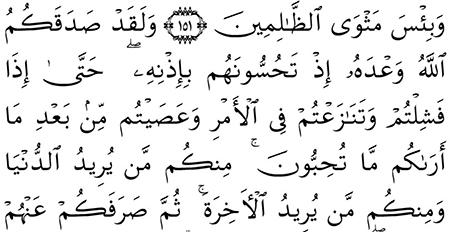 وَبِئْسَ مَثْوَى ٱلظَّٰلِمِينَ ۝١٥١ وَلَقَدْ صَدَقَكُمُ
ٱللَّهُ وَعْدَهُۥٓ إِذْ تَحُسُّونَهُم بِإِذْنِهِۦ ۖ حَتَّىٰٓ إِذَا
فَشِلْتُمْ وَتَنَٰزَعْتُمْ فِى ٱلْأَمْرِ وَعَصَيْتُم مِّنۢ بَعْدِ مَآ
أَرَىٰكُم مَّا تُحِبُّونَ ۚ مِنكُم مَّن يُرِيدُ ٱلدُّنْيَا
وَمِنكُم مَّن يُرِيدُ ٱلْـَٔاخِرَةَ ۚ ثُمَّ صَرَفَكُمْ عَنْهُمْ